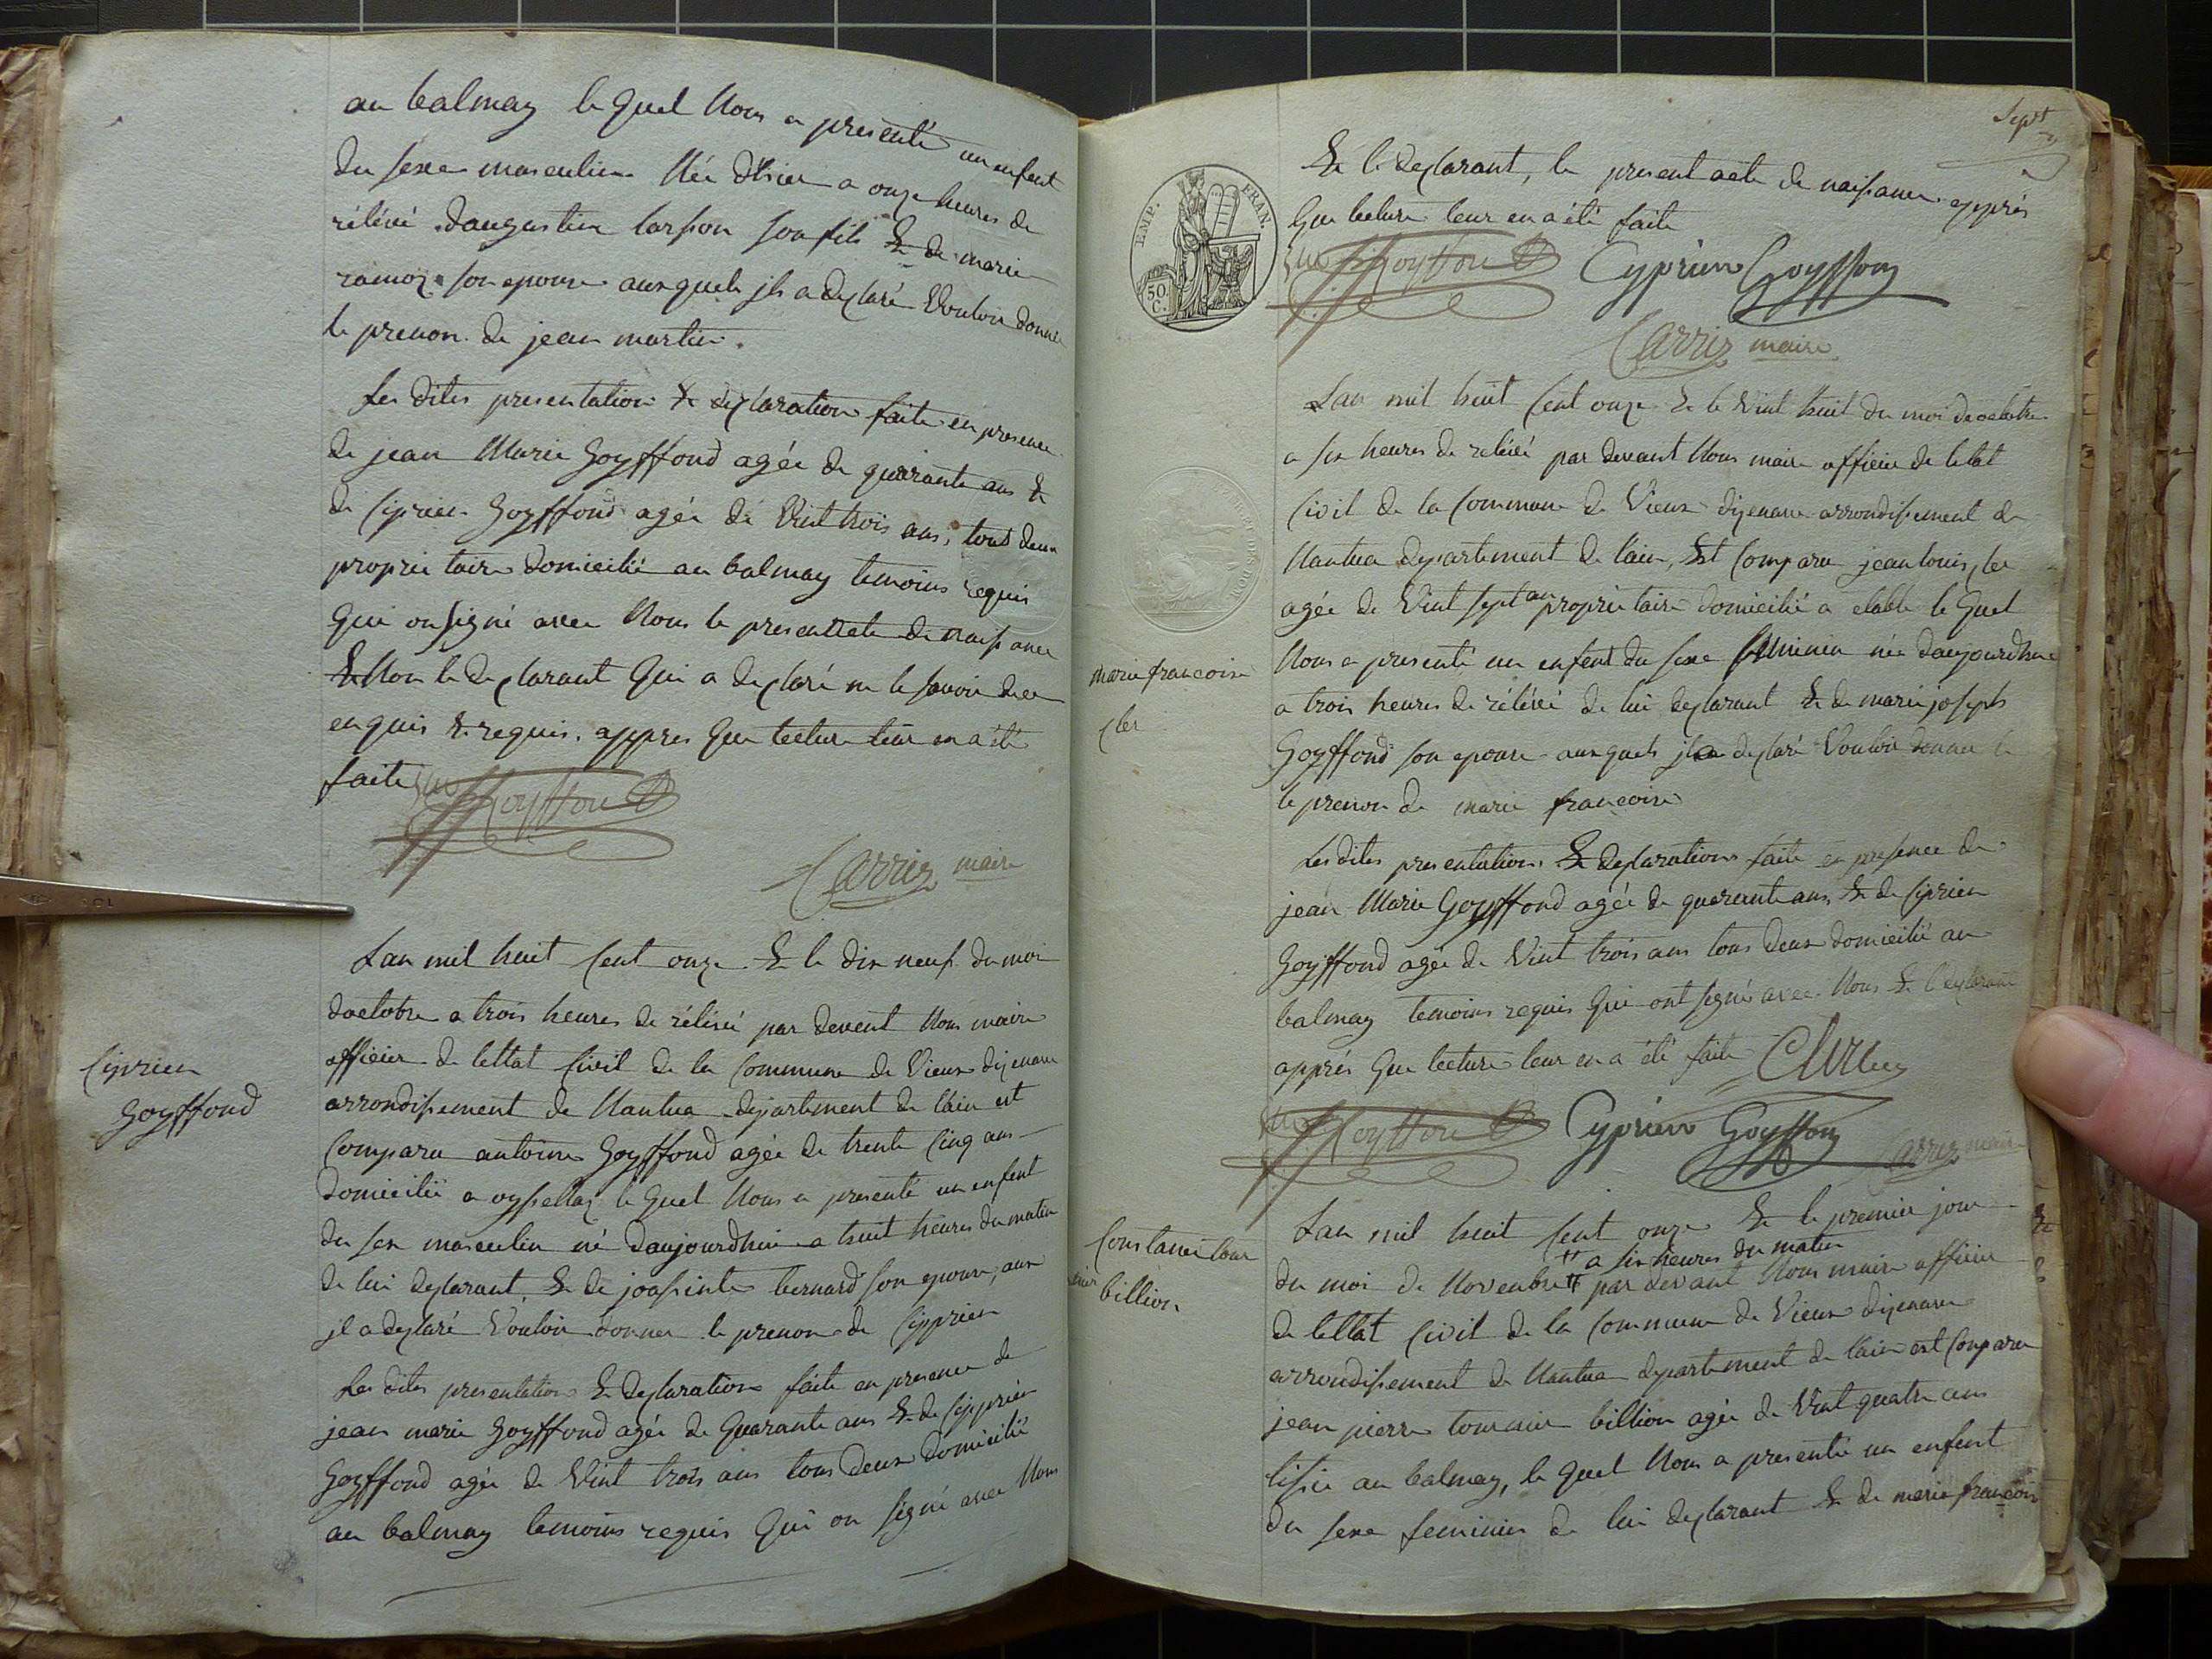 au balmay le quel Nous a presenté un enfent
du sexe masculin Née d'hier a onze heures de
rélévé daugustin son fils & de marie
ramoz son epouse aux quels jls a declaré Vouloir donner
le prenon de jean martin.
Les dites presentation & declaration faite en presence
de jean Marie Goyffond agée de quarante ans &
de Ciprien Goyffond agée de Vint trois ans, tous deux
proprietaire domicilié au balmay temoins requis
qui on signé avec Nous le present acte de naissance
& Non le declarant qui a declaré ne le savoir de ce
enquis & requis. appres que lecture leur en a été
faite
Goyffond
Carrier maire
Ciprien
Goyffond
Lan mil huit Cent onze & le dix neuf du moi
doctobre a trois heures de rélévé par devent Nous maire
officier de lettat Civil de la Commune de Vieux dizenave
arrondissement de Nantua departement de lain est
Comparu antoine Goyffond agée de trente Cinq ans
domicilié a oyssellaz le quel Nous a presenté un enfent
du sexe masculin né daujourdhui a huit heures du matin
de lui declarant & de bernard son epouse, aux
jl a declaré Vouloir donner le prenon de Cipprien
Les dites presentation & declaration faite en presence de
jean marie Goyffond agée de Quarante ans & de Cipprien
Goyffond agée de Vint trois ans tous deux domicilié
au balmay temoins requis qui on signé avec Nous
Sept
EMP. FRAN.
50. C.
& le declarant, le present acte de naissance apprés
que lecture leur en a été faite
Goyffond Cyprien Goyffon
Carrier maire
marie francoise
Lan mil huit Cent onze & le Vint huit du moi de octobre
a six heures de rélévé par devant Nous maire officier de letat
Civil de la Commune de Vieux dizenave arrondissement de
Nantua departement de lain, Est Comparu jean louis
agée de Vint sept ans proprietaire domicilié a etable le quel
Nous a presenté un enfent du sexe feminin née daujourdhui
a trois heures de rélévé de lui declarant & de marie joseph
Goyffond son epouse aux quels jl a declaré Vouloir donner le
le prenon de marie francoise
Les dites presentation & declaration faite en presence de
jean Marie Goyffond agée de quarante ans & de Ciprien
Goyffond agée de Vint trois ans tous deux domicilié au
balmay temoins requis qui ont signé avec Nous & le declarant
apprés que lecture leur en a été faite
Goyffond Cyprien Goyffon Carrier maire
Constance tour
nier
billion
Lan mil huit Cent onze & le premier jour
du moi de Novembre # # a six heures du matin par devant Nous maire officier
de lettat Civil de la Commune de Vieux dizenave
arrondissement de Nantua departement de lain est Comparu
jean pierre tournier billion agée de Vint quatre ans
au balmay, le quel Nous a presentée un enfent
du sexe feminin de lui declarant & de marie francoise